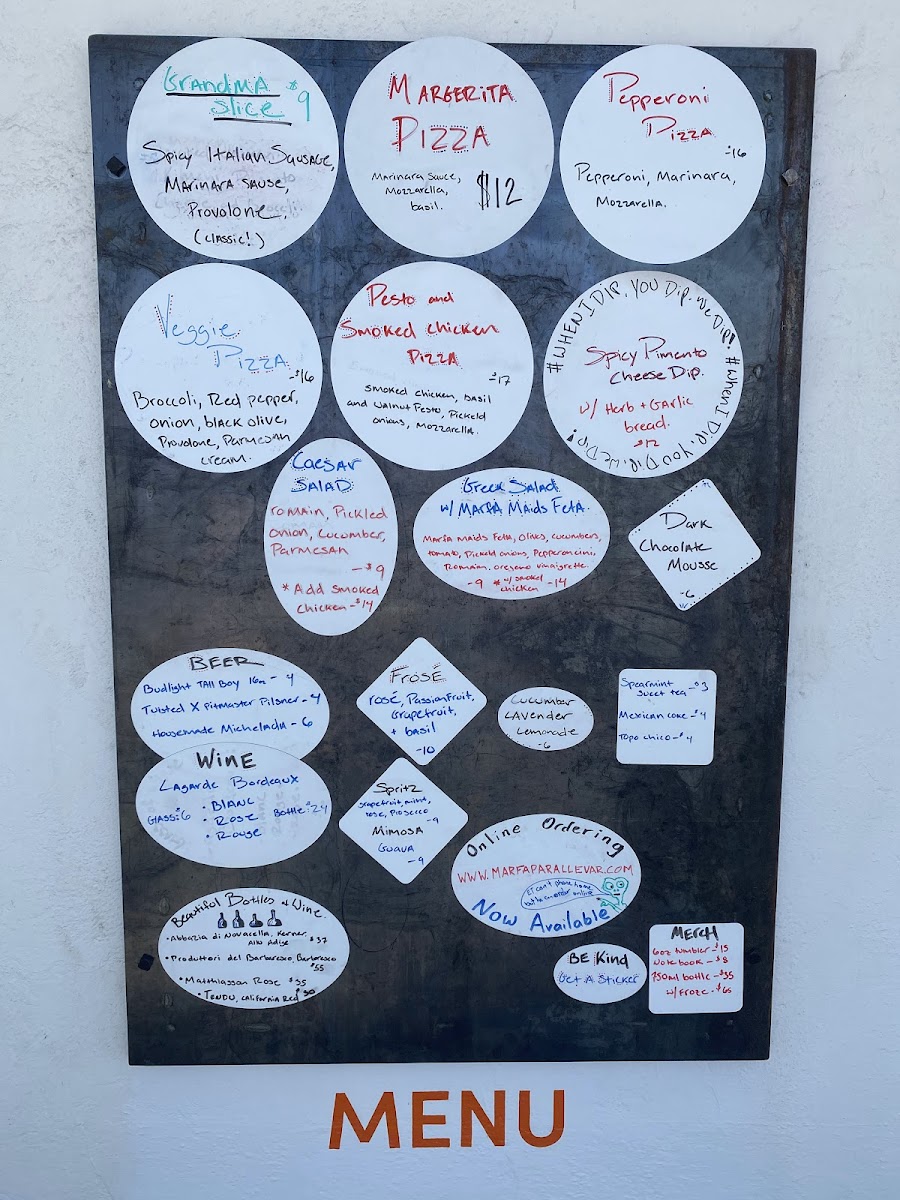 Grandma $9
Slice
Spicy Italian Sausage,
Marinara Sause,
Provolone,
(classic!)
Margerita
Pizza
Marinara sauce,
Mozzarella,
basil.
$12
Pepperoni
Pizza
-$16
Pepperoni, Marinara,
Mozzarella.
Veggie
Pizza
-$16
Broccoli, Red pepper,
onion, black olive,
Provolone, Parmesan
cream.
Pesto and
Smoked chicken
Pizza
-$17
smoked chicken, basil
and walnut Pesto, Pickeld
onions, Mozzarella.
#WHEN I DIP, YOU DIP, WE DIP!
#WHEN I DIP, YOU DIP, WE DIP!
Spicy Pimento
Cheese Dip.
w/ Herb + Garlic
bread.
$12
Caesar
Salad
romain, Pickled
onion, Cucumber,
Parmesan
-$9
*Add smoked
chicken -$14
Greek Salad
w/ Marfa Maids Feta.
Marfa Maids Feta, Olives, cucumbers,
tomato, Pickeld onions, Pepperoncini,
Romain, oregano vinaigrette.
-9 * w/ smoked -14
chicken
Dark
Chocolate
Mousse
-6
BEER
Budlight Tall Boy 16oz - 4
Twisted X Pitmaster Pilsner - 4
Housemade Michelada - 6
Frosé
rosé, Passionfruit,
Grapefruit,
+ basil
-10
Cucumber
Lavender
Lemonade
-6
Spearmint
sweet tea -$3
Mexican coke -$4
Topo chico -$4
WINE
Lagarde Bordeaux
Glass: $6
• Blanc
• Rose
• Rouge
Bottle: $24
Spritz
grapefruit, mint,
rose, Prosecco
-9
Mimosa
Guava
-9
Online Ordering
www.marfaparallevar.com
ET can't phone home
but he can order online
Now Available
Beautiful Bottles of Wine
• Abbazia di Novacella, Kerner,
Alto Adige $37
• Produttori del Barbaresco, Barbaresco
$55
• Matthiasson Rose $35
• Tendu, California Red $30
BE Kind
Get A Sticker
MERCH
6oz tumbler -$15
Notebook -$8
750ml bottle -$35
w/ Froze -$65
MENU